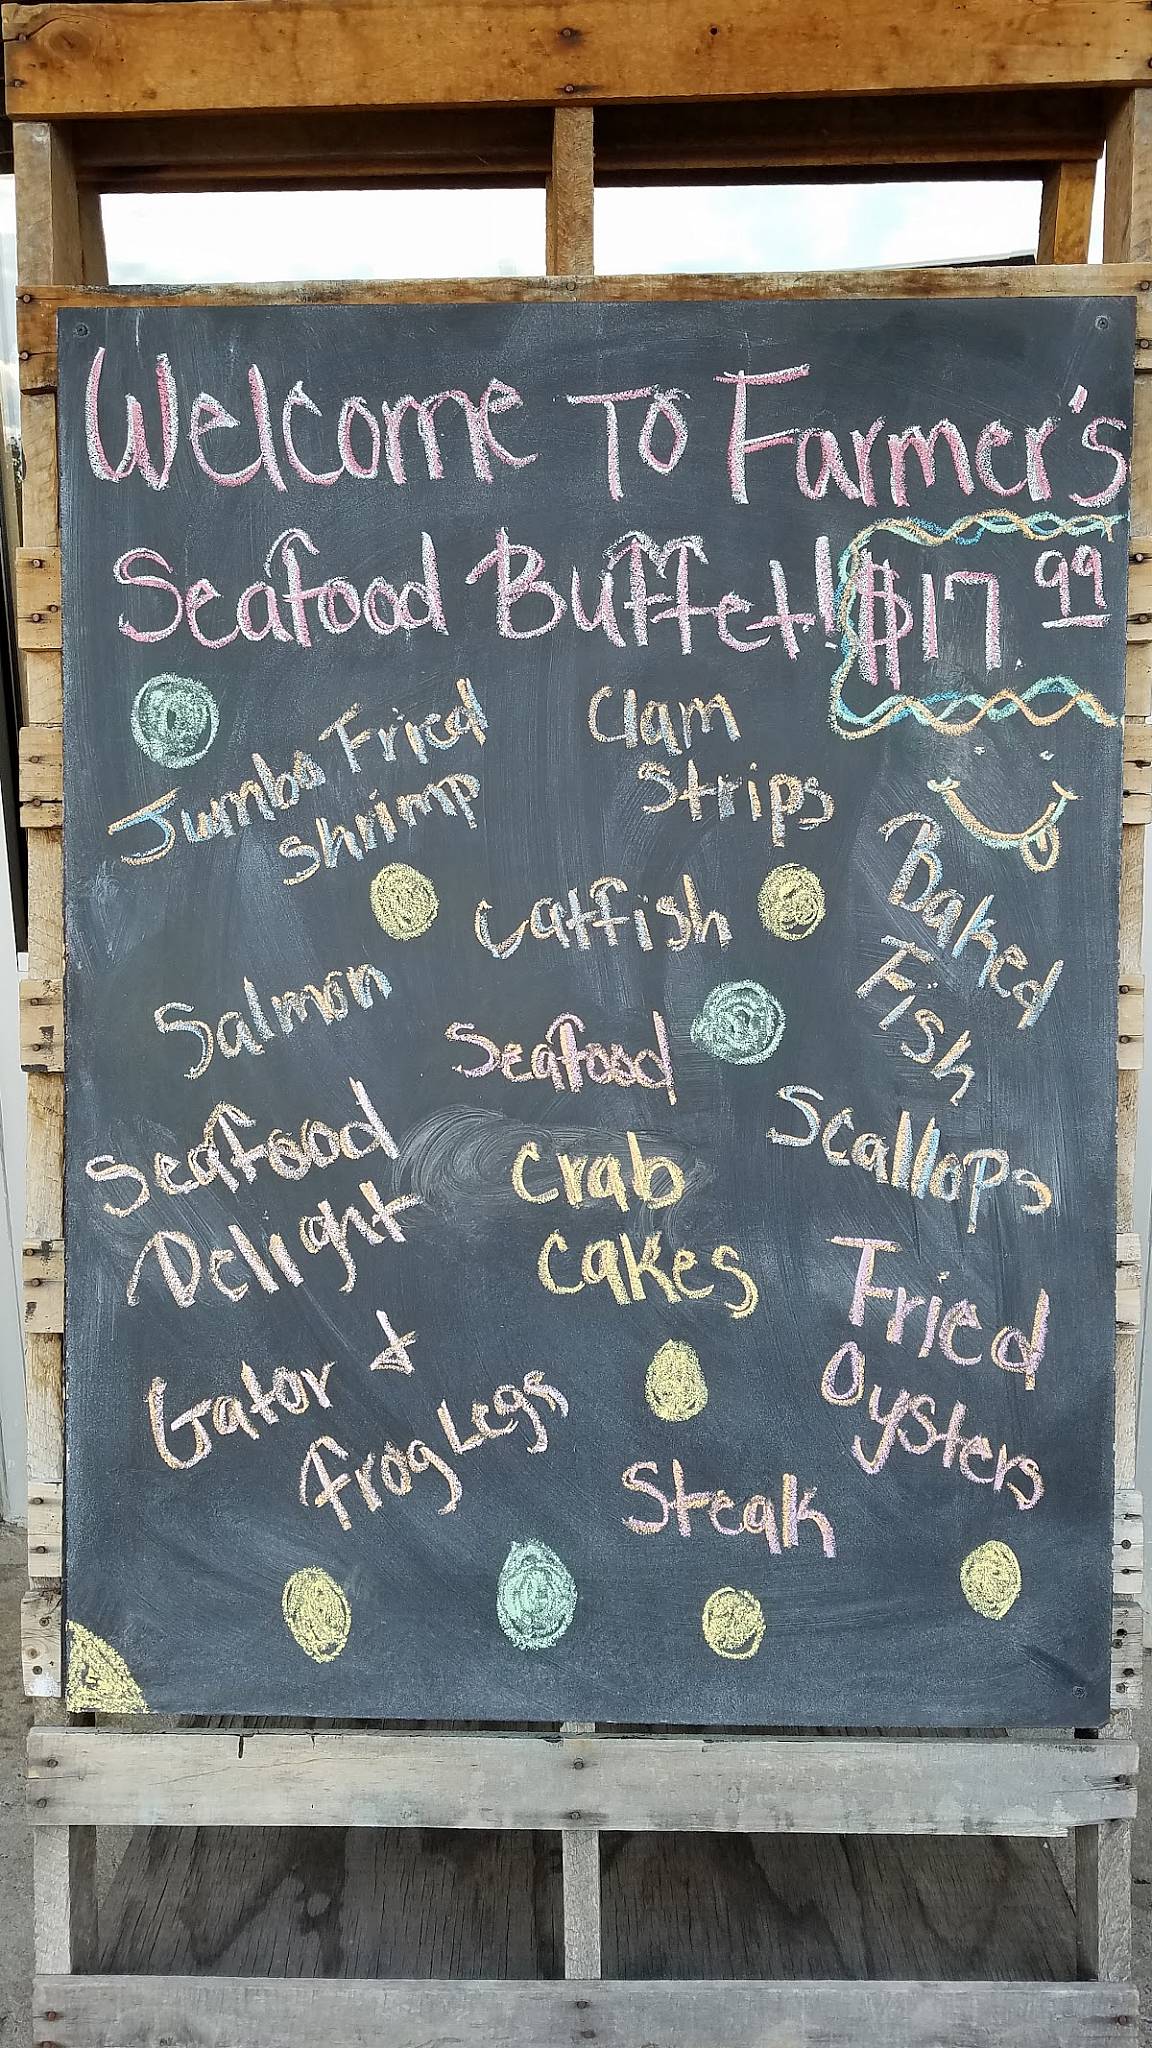 Welcome To Farmer's
Seafood Buffet! $17 99
Jumbo Fried
Shrimp
Clam
Strips
Catfish
Baked
Fish
Salmon
Seafood
Scallops
Seafood
Delight
Crab
Cakes
Fried
Oysters
Gator &
frog Legs
Steak